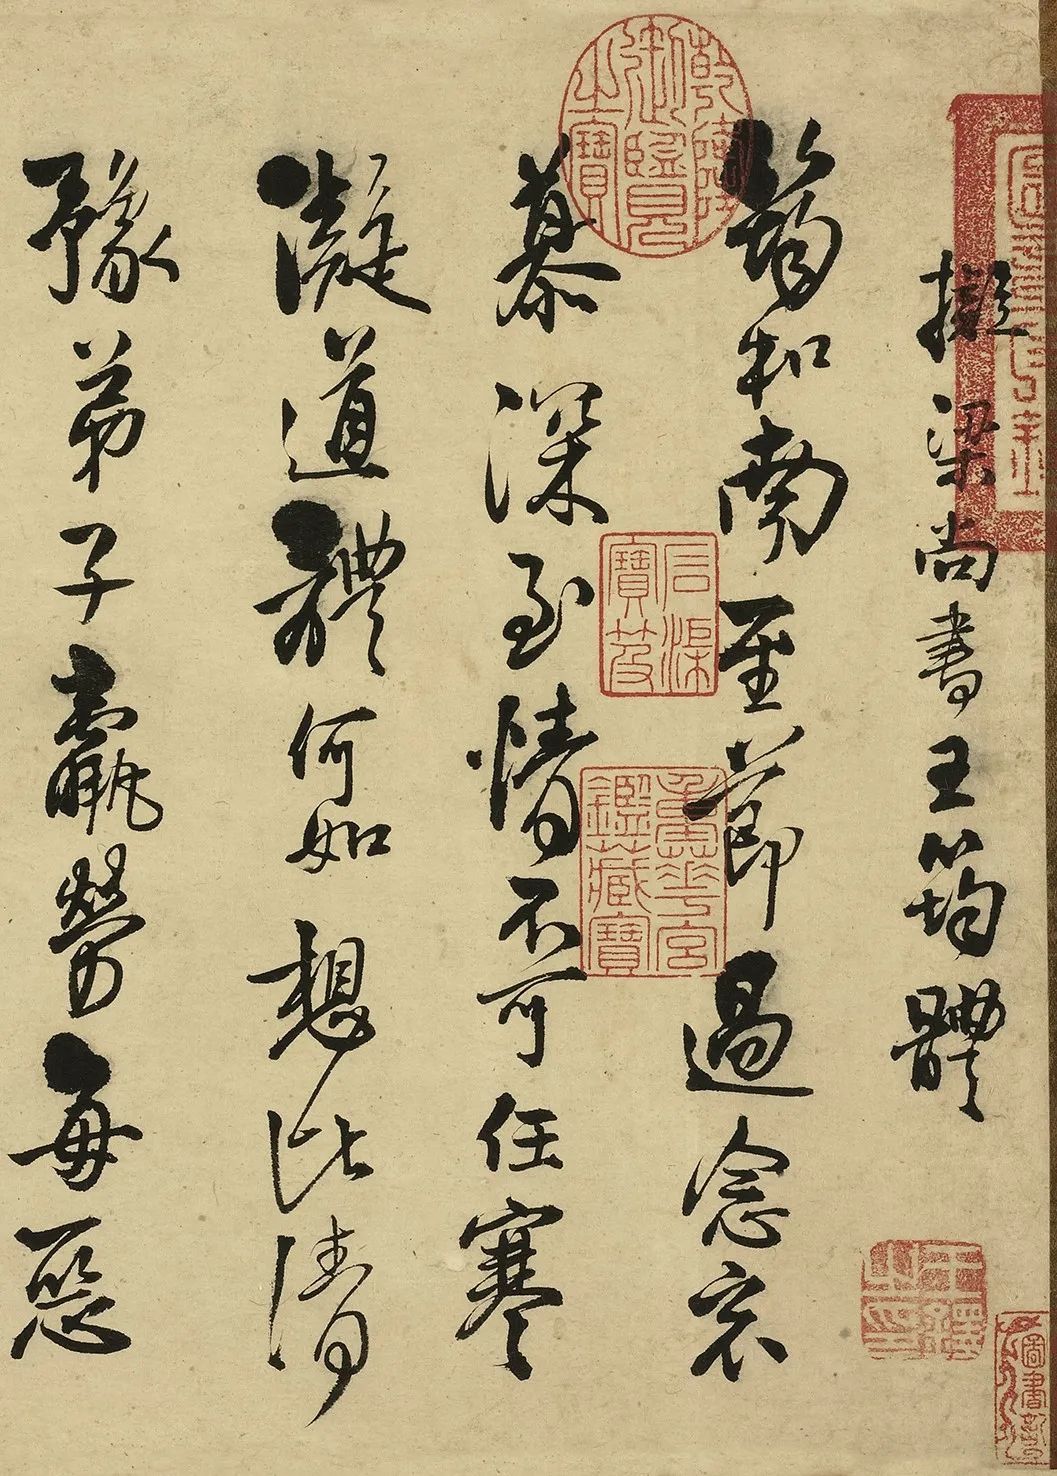 擬梁尚書王筠體
筠和南至節過念哀
慕深至情不可任寒
凝道體何如想比清
豫弟子羸勞每惡
乾隆御覽之寶
石渠寶笈
重華宮鑑藏寶
王鐸之印